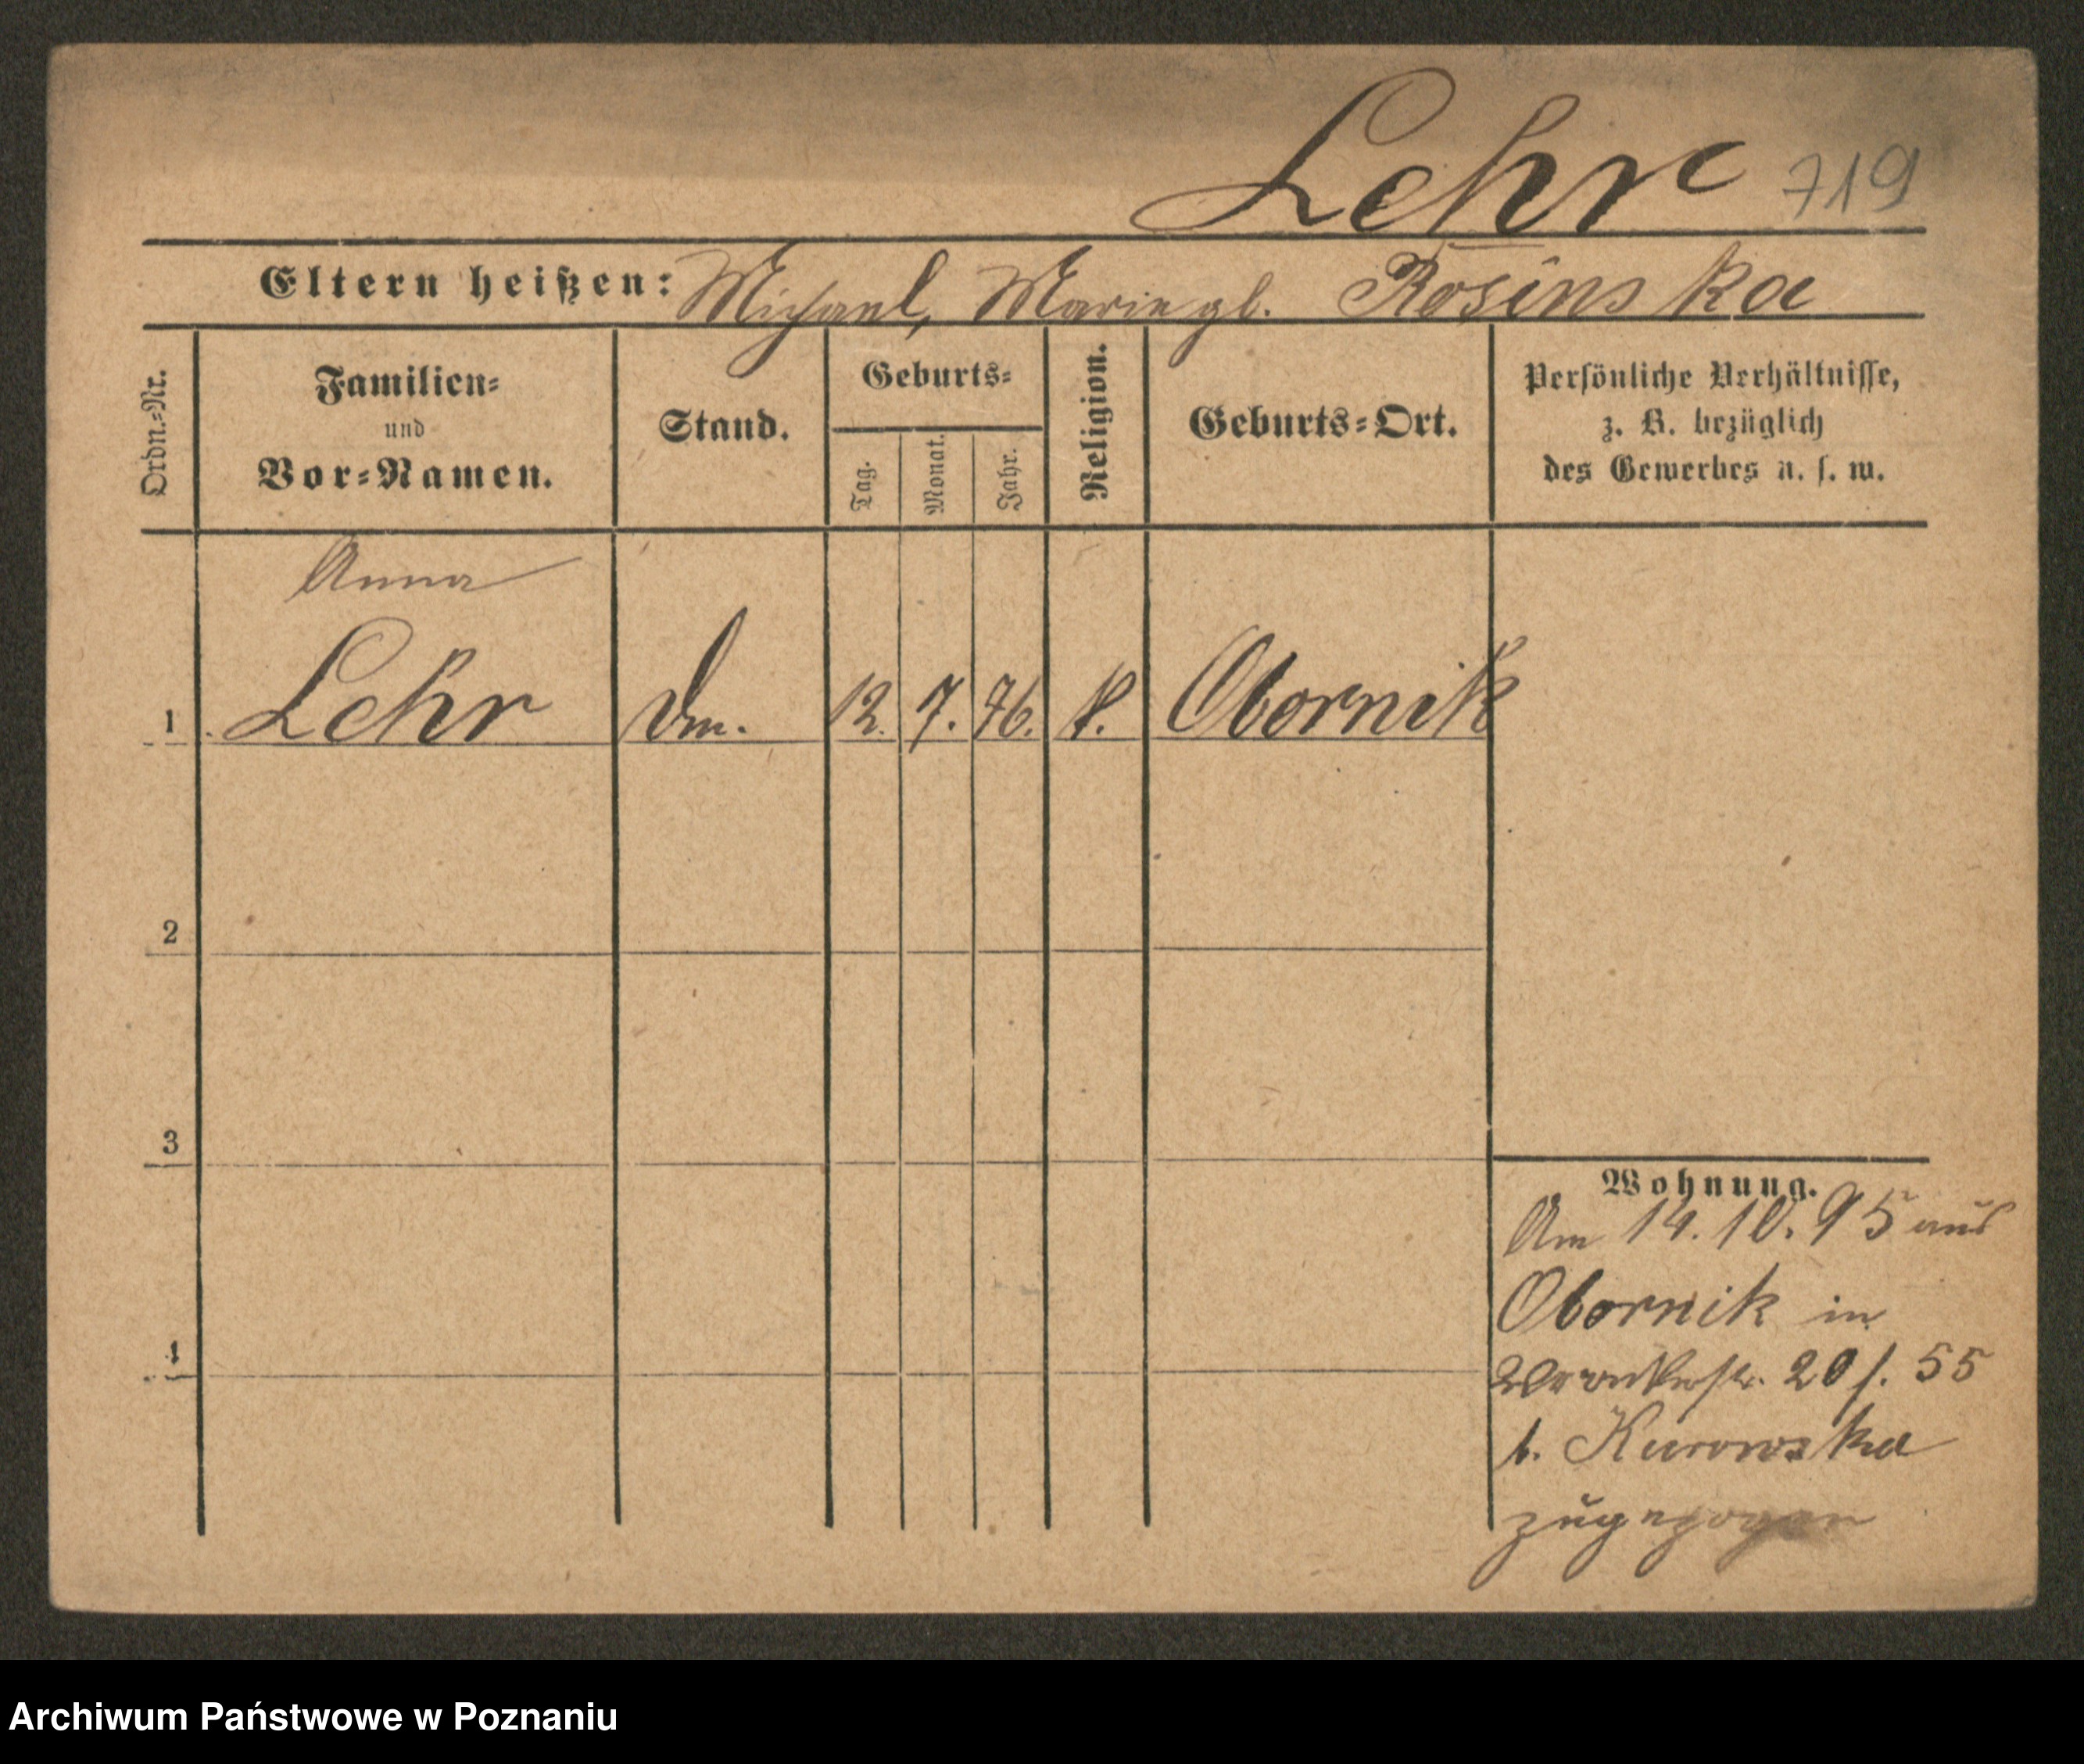 Lehr 719
Eltern heißen: Michael, Marie gb. Rosinska
Ordn.-Nr.
Familien-
und
Vor-Namen.
Stand.
Geburts-
Tag.
Monat.
Jahr.
Religion.
Geburts-Ort.
Persönliche Verhältnisse,
z. B. bezüglich
des Gewerbes u. s. w.
Anna
1 Lehr 12. 7. 76. k. Obornik
2
3
4
Wohnung.
Am 14.10.95 aus
Obornik in
20/. 55
b. Kurowska
zugezogen
Archiwum Państwowe w Poznaniu